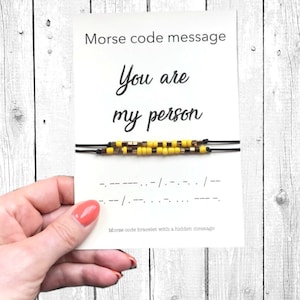 Morse code message
You are
my person
Morse code bracelet with a hidden message